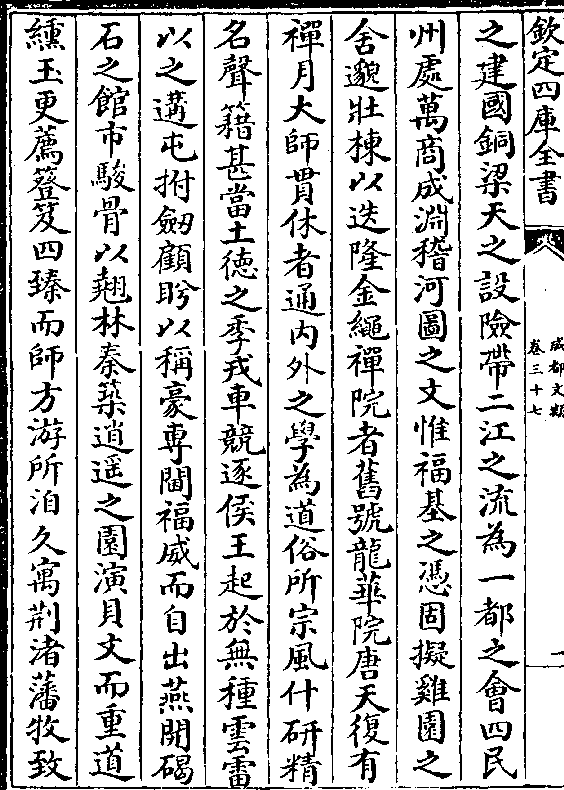 欽定四庫全書
成都文類
卷三十七
一
之建國銅梁天之設險帶二江之流為一都之會四民
州處萬商成淵稽河圖之文惟福基之憑固擬雞園之
舍邈壯棟以迭隆金繩禪院者舊號龍華院唐天復有
禪月大師貫休者通內外之學為道俗所宗風什研精
名聲籍甚當土德之季戎車競逐侯王起於無種雲雷
以之遘屯拊劔顧眄以稱豪專閫福威而自出燕開碣
石之館市駿骨以翹林秦築逍遥之園演貝文而重道
纁玉更薦簦笈四臻而師方游所洎久寓荆渚藩牧致